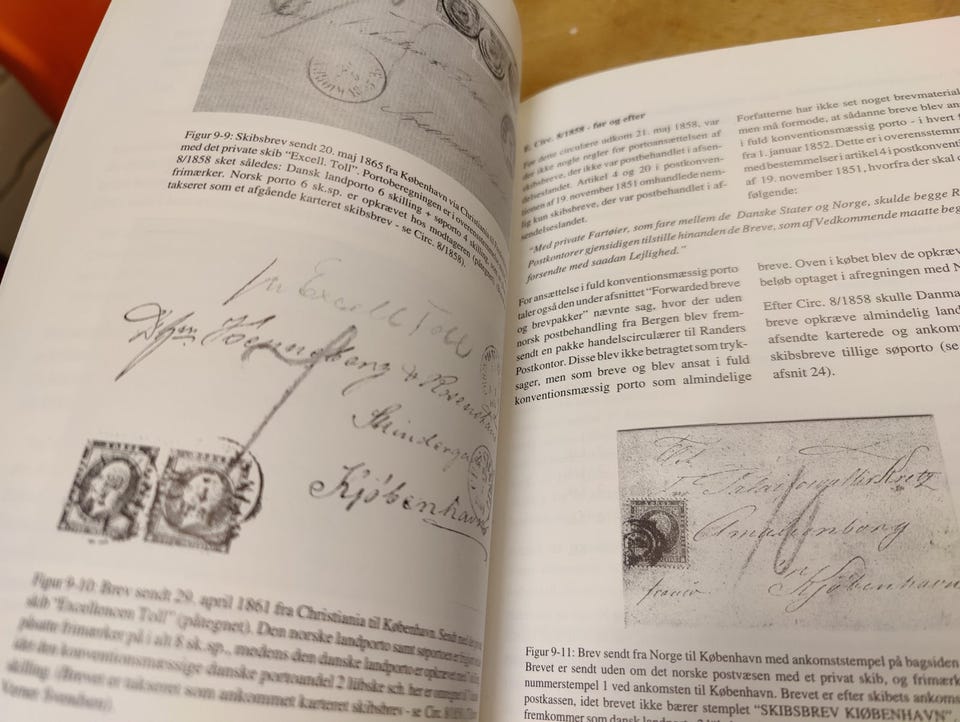 Figur 9-9: Skibsbrev sendt 20. maj 1865 fra København via Christiania til
med det private skib "Excell. Toll". Portoberegningen er i overensstemmelse
8/1858 sket således: Dansk landporto 6 skilling + søporto 4 skilling,
frimærker. Norsk porto 6 sk.sp. er opkrævet hos modtageren
takseret som et afgående karteret skibsbrev - se Circ. 8/1858).
pr Excell Toll
Kjøbenhavn
Figur 9-10: Brev sendt 29. april 1861 fra Christiania til København. Sendt med
skib "Excellencen Toll" (påtegnet). Den norske landporto samt søportoen er
påsatte frimærker på i alt 8 sk.sp., medens den danske landporto er opkrævet
det konventionsmæssige danske portoandel 2 lübske sch. her er
skilling. takseret som ankommet karteret skibsbrev - se Circ. 8/1858.
Circ. 8/1858 - før og efter
Før dette circulære udkom 21. maj 1858, var
der ikke nogle regler for portoansættelsen af
skibsbreve, der ikke var postbehandlet i afsen-
delseslandet. Artikel 4 og 20 i postkonven-
tionen af 19. november 1851 omhandlede nem-
lig kun skibsbreve, der var postbehandlet i af-
sendelseslandet.
Forfatterne har ikke set noget brevmateriale
men må formode, at sådanne breve blev
i fuld konventionsmæssig porto - i hvert
fra 1. januar 1852. Dette er i overensstem
med bestemmelser i artikel 4 i postkonventi
af 19. november 1851, hvorfra der skal
følgende:
"Med private Fartøier, som fare mellem de Danske Stater og Norge, skulde begge
Postkontorer gjensidigen tilstille hinanden de Breve, som af Vedkommende maatte
forsendte med saadan Lejlighed."
For ansættelse i fuld konventionsmæssig porto
taler også den under afsnittet "Forwarded breve
og brevpakker" nævnte sag, hvor der uden
norsk postbehandling fra Bergen blev frem-
sendt en pakke handelscirculærer til Randers
Postkontor. Disse blev ikke betragtet som tryk-
sager, men som breve og blev ansat i fuld
konventionsmæssig porto som almindelige
breve. Oven i købet blev de opkræv
beløb optaget i afregningen med N
Efter Circ. 8/1858 skulle Danma
breve opkræve almindelig land
afsendte karterede og ankom
skibsbreve tillige søporto (se
afsnit 24).
Amalienborg
Kjøbenhavn
franco
Figur 9-11: Brev sendt fra Norge til København med ankomststempel på bagsiden
Brevet er sendt uden om det norske postvæsen med et privat skib, og frimærk
nummerstempel 1 ved ankomsten til København. Brevet er efter skibets ankoms
postkassen, idet brevet ikke bærer stemplet "SKIBSBREV KIØBENHAVN"
fremkommer som dansk